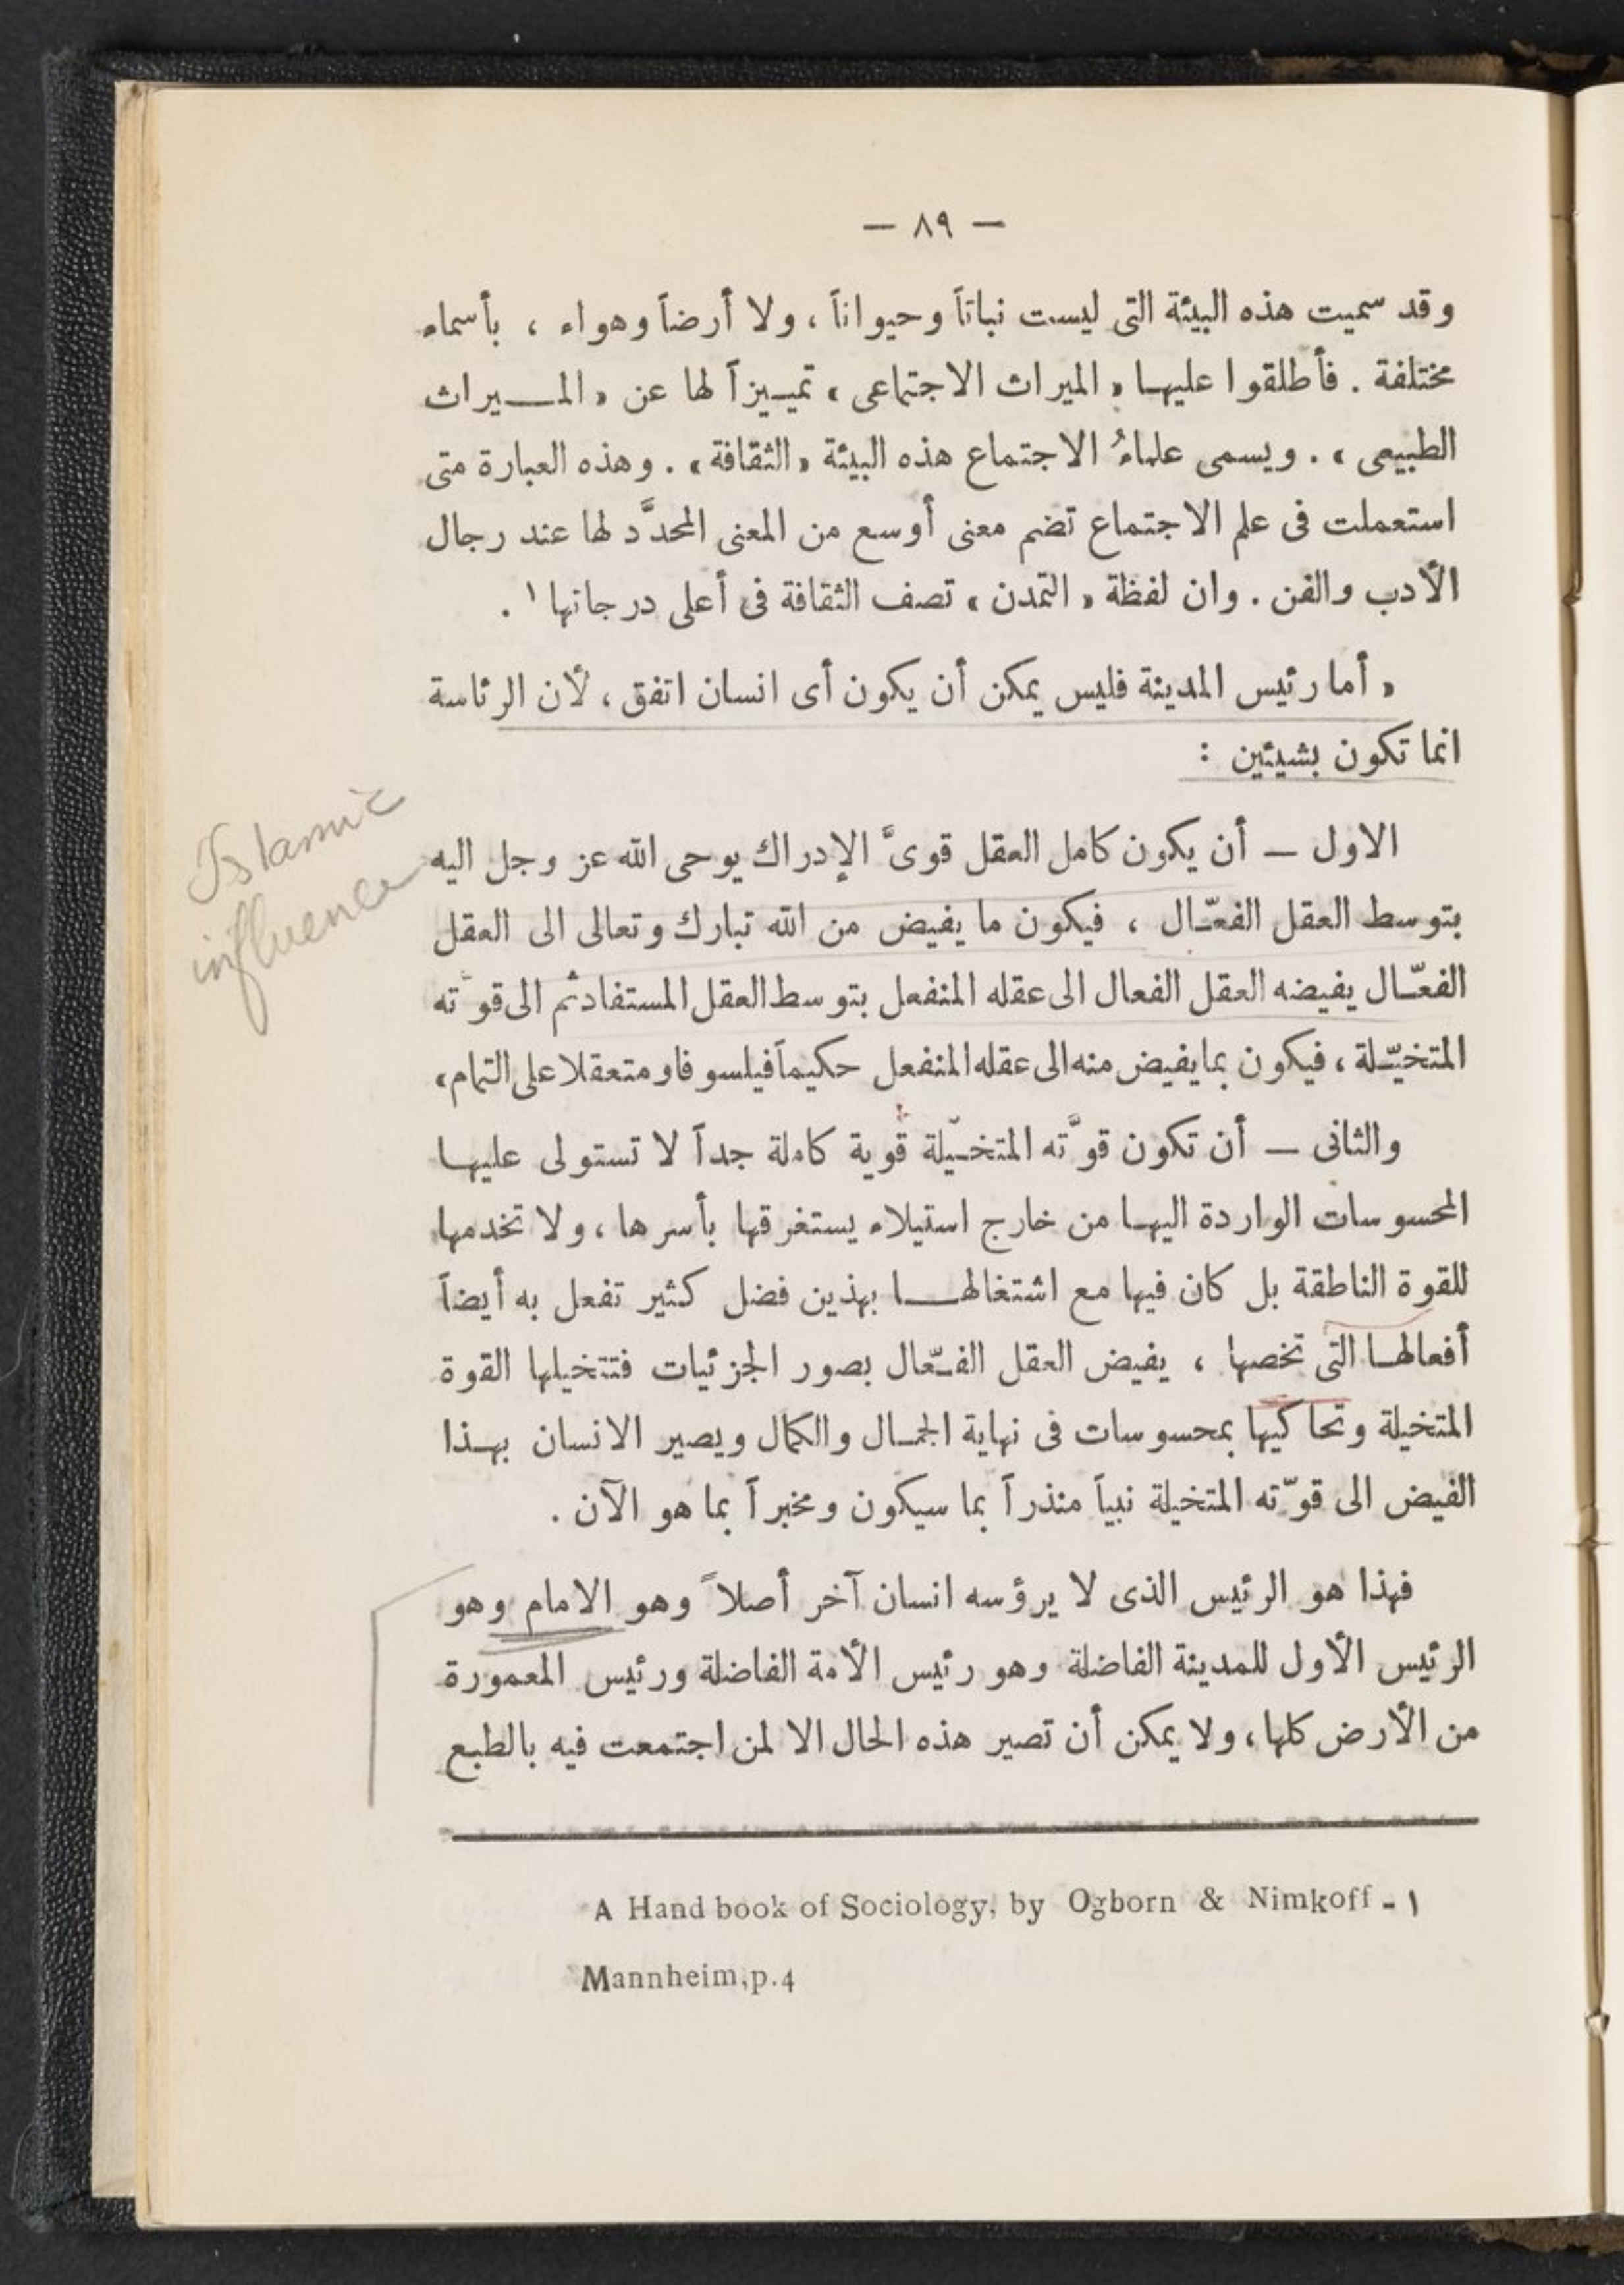 — ٨٩ —
وقد سميت هذه البيئة التى ليست نباتاً وحيواناً ، ولا أرضاً وهواء ، بأسماء
مختلفة . فأطلقوا عليهـا « الميراث الاجتماعى » تمييزاً لها عن « المـــيراث
الطبيعى » . ويسمى علماءُ الاجتماع هذه البيئة « الثقافة » . وهذه العبارة متى
استعملت فى علم الاجتماع تضم معنى أوسع من المعنى المحدَّد لها عند رجال
الأدب والفن . وان لفظة « التمدن » تصف الثقافة فى أعلى درجاتها ١ .
« أما رئيس المدينة فليس يمكن أن يكون أى انسان اتفق ، لأن الرئاسة
انما تكون بشيئين :
الاول — أن يكون كامل العقل قوىَّ الإدراك يوحى الله عز وجل اليه
Islamic
influence
بتوسط العقل الفعّـال ، فيكون ما يفيض من الله تبارك وتعالى الى العقل
الفعّـال يفيضه العقل الفعال الى عقله المنفعل بتوسط العقل المستفاد ثم الى قوّته
المتخيّـلة ، فيكون بما يفيض منه الى عقله المنفعل حكيماً فيلسوفا ومتعقلا على التمام ،
والثانى — أن تكون قوَّته المتخـيّلة قوية كاملة جداً لا تستولى عليهـا
المحسوسات الواردة اليهـا من خارج استيلاء يستغرقها بأسرها ، ولا تخدمها
للقوة الناطقة بل كان فيها مع اشتغالهـــا بهذين فضل كثير تفعل به أيضاً
أفعالهـا التى تخصها ، يفيض العقل الفـعّال بصور الجزئيات فتتخيلها القوة
المتخيلة وتحاكيها بمحسوسات فى نهاية الجمـال والكمال ويصير الانسان بهـذا
الفيض الى قوّته المتخيلة نبياً منذراً بما سيكون ومخبراً بما هو الآن .
فهذا هو الرئيس الذى لا يرؤسه انسان آخر أصلاً وهو الامام وهو
الرئيس الأول للمدينة الفاضلة وهو رئيس الأمة الفاضلة ورئيس المعمورة
من الأرض كلها ، ولا يمكن أن تصير هذه الحال الا لمن اجتمعت فيه بالطبع
A Hand book of Sociology, by Ogborn & Nimkoff - ١
Mannheim,p.4